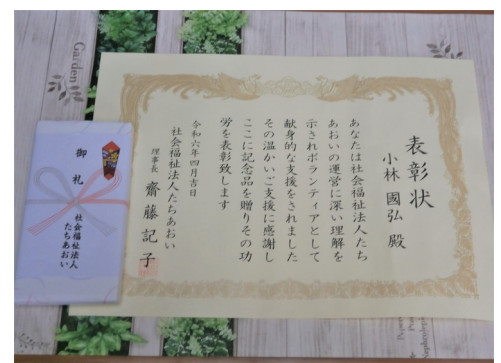 表彰状
小林 國弘 殿
あなたは社会福祉法人たち
あおいの運営に深い理解を
示されボランティアとして
献身的な支援をされました
その温かいご支援に感謝し
ここに記念品を贈りその功
労を表彰致します
令和六年四月吉日
社会福祉法人たちあおい
理事長 齋藤 記子
御礼
社会福祉法人
たちあおい
Garden